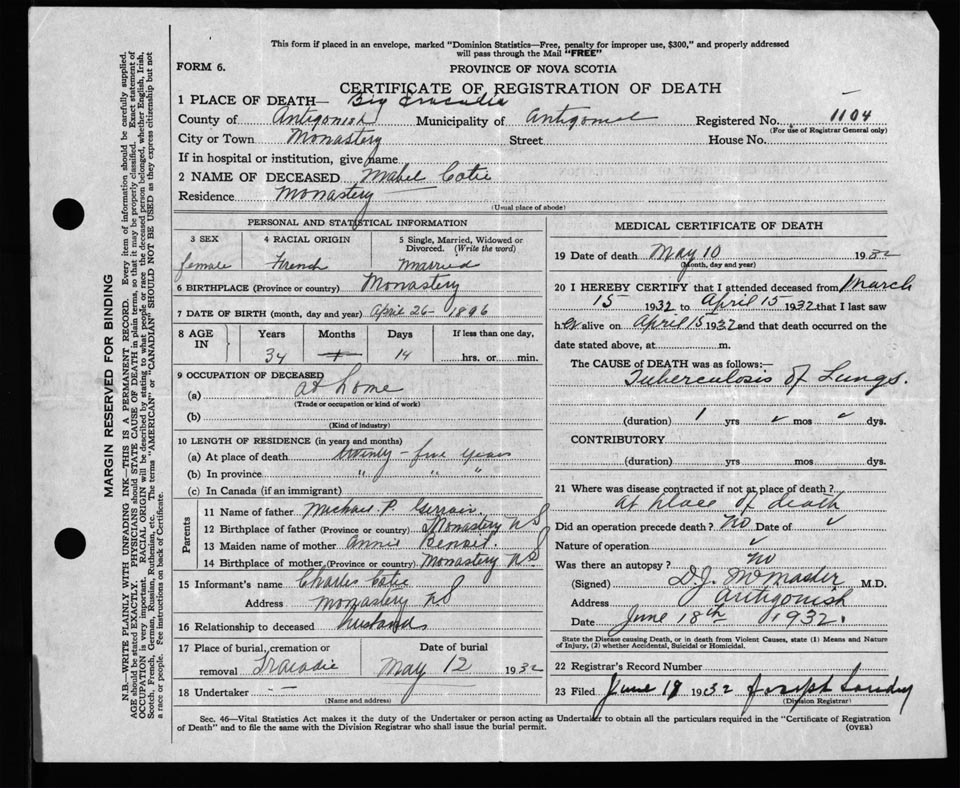 This form if placed in an envelope, marked "Dominion Statistics—Free, penalty for improper use, $300," and properly addressed
will pass through the Mail "FREE"
FORM 6.
PROVINCE OF NOVA SCOTIA
CERTIFICATE OF REGISTRATION OF DEATH
1 PLACE OF DEATH— Big
County of Antigonish Municipality of Antigonish Registered No. 1104
(For use of Registrar General only)
City or Town Monastery Street House No.
If in hospital or institution, give name
2 NAME OF DECEASED Mabel Cotie
Residence Monastery
(Usual place of abode)
PERSONAL AND STATISTICAL INFORMATION
3 SEX 4 RACIAL ORIGIN 5 Single, Married, Widowed or
Divorced. (Write the word)
female French Married
6 BIRTHPLACE (Province or country) Monastery
7 DATE OF BIRTH (month, day and year) April 26 - 1896
8 AGE IN Years Months Days If less than one day,
34 14 hrs. or min.
9 OCCUPATION OF DECEASED
(a) at home
(Trade or occupation or kind of work)
(b)
(Kind of industry)
10 LENGTH OF RESIDENCE (in years and months)
(a) At place of death twenty-five years
(b) In province " " "
(c) In Canada (if an immigrant)
Parents
11 Name of father Michael P.
12 Birthplace of father (Province or country) Monastery NS
13 Maiden name of mother Annie Benoit.
14 Birthplace of mother (Province or country) Monastery NS.
15 Informant's name Charles Cotie
Address Monastery NS
16 Relationship to deceased husband
17 Place of burial, cremation or Date of burial
removal Tracadie May 12 1932
18 Undertaker - —
(Name and address)
MEDICAL CERTIFICATE OF DEATH
19 Date of death May 10 1932
(Month, day and year)
20 I HEREBY CERTIFY that I attended deceased from March
15 1932 to April 15 1932 that I last saw
her alive on April 15 1932 and that death occurred on the
date stated above, at m.
The CAUSE of DEATH was as follows:—
Tuberculosis of Lungs.
(duration) 1 yrs ✓ mos ✓ dys.
CONTRIBUTORY
(duration) yrs. mos. dys.
21 Where was disease contracted if not at place of death?
At place of death
Did an operation precede death? No Date of ✓
Nature of operation ✓
Was there an autopsy? No
(Signed) D.J. McMaster M.D.
Address Antigonish
Date June 18th 1932.
State the Disease causing Death, or in death from Violent Causes, state (1) Means and Nature
of Injury, (2) whether Accidental, Suicidal or Homicidal.
22 Registrar's Record Number
23 Filed June 19 1932 Joseph Landry
(Division Registrar)
Sec. 46—Vital Statistics Act makes it the duty of the Undertaker or person acting as Undertaker to obtain all the particulars required in the "Certificate of Registration
of Death" and to file the same with the Division Registrar who shall issue the burial permit.
(OVER)
MARGIN RESERVED FOR BINDING
N.B.—WRITE PLAINLY WITH UNFADING INK—THIS IS A PERMANENT RECORD. Every item of information should be carefully supplied.
AGE should be stated EXACTLY. PHYSICIANS should STATE CAUSE OF DEATH in plain terms, so that it may be properly classified. Exact statement of
OCCUPATION is very important. RACIAL ORIGIN will be described by stating to what people or race the deceased person belonged, whether English, Irish,
Scotch, French, German, Russian, Ruthenian, etc. The terms "AMERICAN" or "CANADIAN" SHOULD NOT BE USED as they express citizenship but not
a race or people. Fee instructions on back of Certificate.